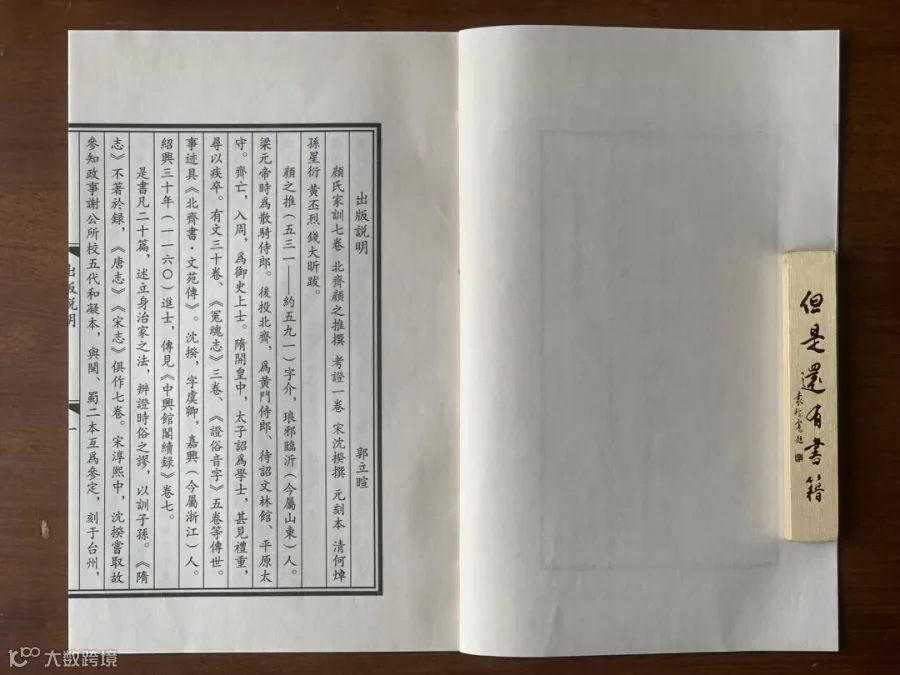 出版説明
郭立暄
顔氏家訓七卷 北齊顔之推撰 考證一卷 宋沈揆撰 元刻本 清何焯
孫星衍 黃丕烈 錢大昕跋。
顔之推（五三一——約五九一）字介，琅邪臨沂（今屬山東）人。
梁元帝時爲散騎侍郎。後投北齊，爲黃門侍郎、待詔文林館、平原太
守。齊亡，入周，爲御史上士。隋開皇中，太子詔爲學士，甚見禮重，
尋以疾卒。有文三十卷、《冤魂志》三卷、《證俗音字》五卷等傳世。
事迹具《北齊書·文苑傳》。沈揆，字虞卿，嘉興（今屬浙江）人。
紹興三十年（一一六〇）進士，傳見《中興館閣續錄》卷七。
是書凡二十篇，述立身治家之法，辨證時俗之謬，以訓子孫。《隋
志》不著於録，《唐志》《宋志》俱作七卷。宋淳熙中，沈揆嘗取故
參知政事謝公所校五代和凝本，與閩、蜀二本互爲參定，刻于台州，
出版説明
一
但是還有書籍
大数跨境